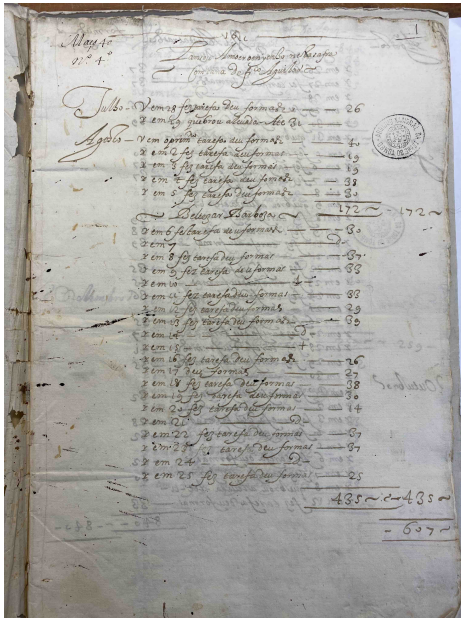 Maço 40
nº 4º
1
Julho
em 28 fes tarefa deu formas 26
em 29 quebrou
Agosto
formas 40
em 2 fes tarefa deu formas 19
em 3 fes tarefa deu formas 19
em 4 fes tarefa deu formas 38
em 5 fes tarefa deu formas 30
172 172
Barbosa
em 6 fes tarefa deu formas 30
em 7
em 8 fes tarefa deu formas 37
em 9 fes tarefa deu formas 33
em 10
em 11 fes tarefa deu formas 33
em 12 fes tarefa deu formas 29
em 13 fes tarefa deu formas 39
em 14
em 15
em 16 fes tarefa deu formas 26
em 17 deu formas 27
em 18 fes tarefa deu formas 38
em 19 fes tarefa deu formas 30
em 20 fes tarefa deu formas 14
em 21
em 22 fes tarefa deu formas 37
em 23 fes tarefa deu formas 37
em 24
em 25 fes tarefa deu formas 25
435 435
607